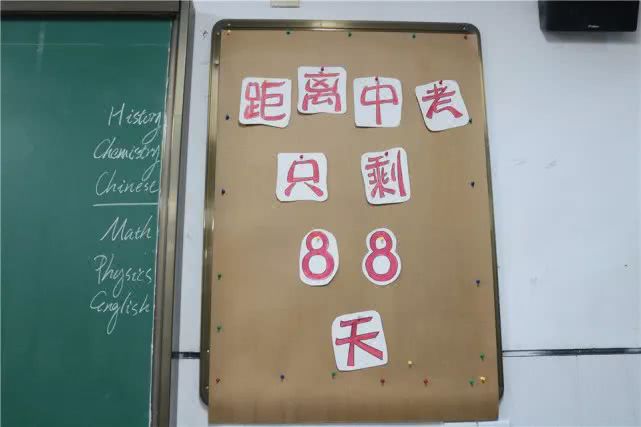 History
Chemistry
Chinese
Math
Physics
English
距离中考
只剩
88
天